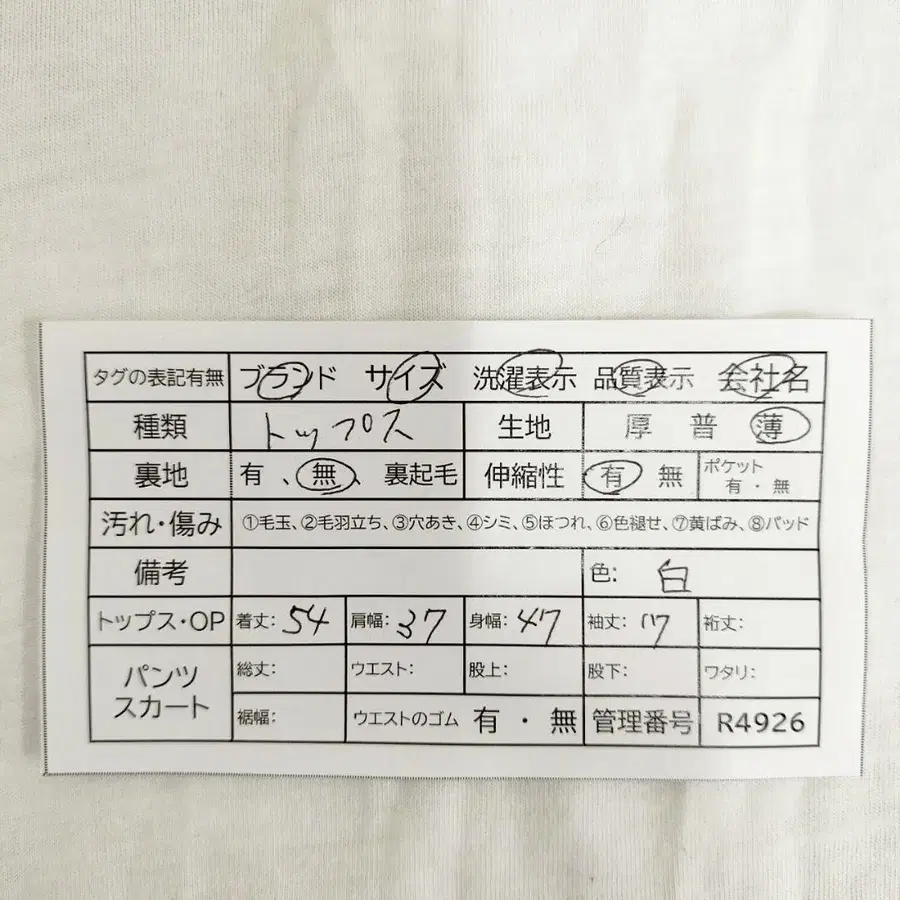 タグの表記有無 ブランド サイズ 洗濯表示 品質表示 会社名
種類 トップス 生地 厚 普 薄
裏地 有 、無、 裏起毛 伸縮性 有 無 ポケット 有・無
汚れ・傷み ①毛玉、②毛羽立ち、③穴あき、④シミ、⑤ほつれ、⑥色褪せ、⑦黄ばみ、⑧パッド
備考 色: 白
トップス・OP 着丈: 54 肩幅: 37 身幅: 47 袖丈: 17 裄丈:
パンツ スカート 総丈: ウエスト: 股上: 股下: ワタリ:
裾幅: ウエストのゴム 有・無 管理番号 R4926